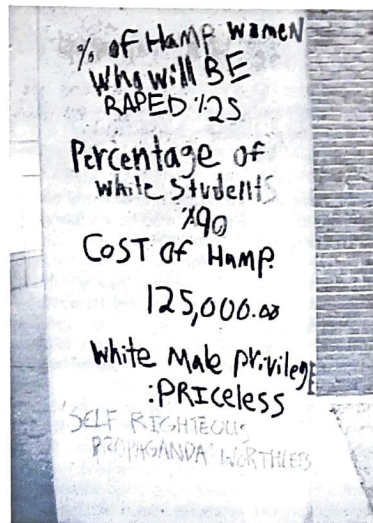 % of Hamp women
Who will BE
RAPED %25
Percentage of
white students
%90
COST OF HAMP.
125,000.00
white male privilege
:PRICELESS
'SELF RIGHTEOUS
PROPAGANDA' WORTHLESS